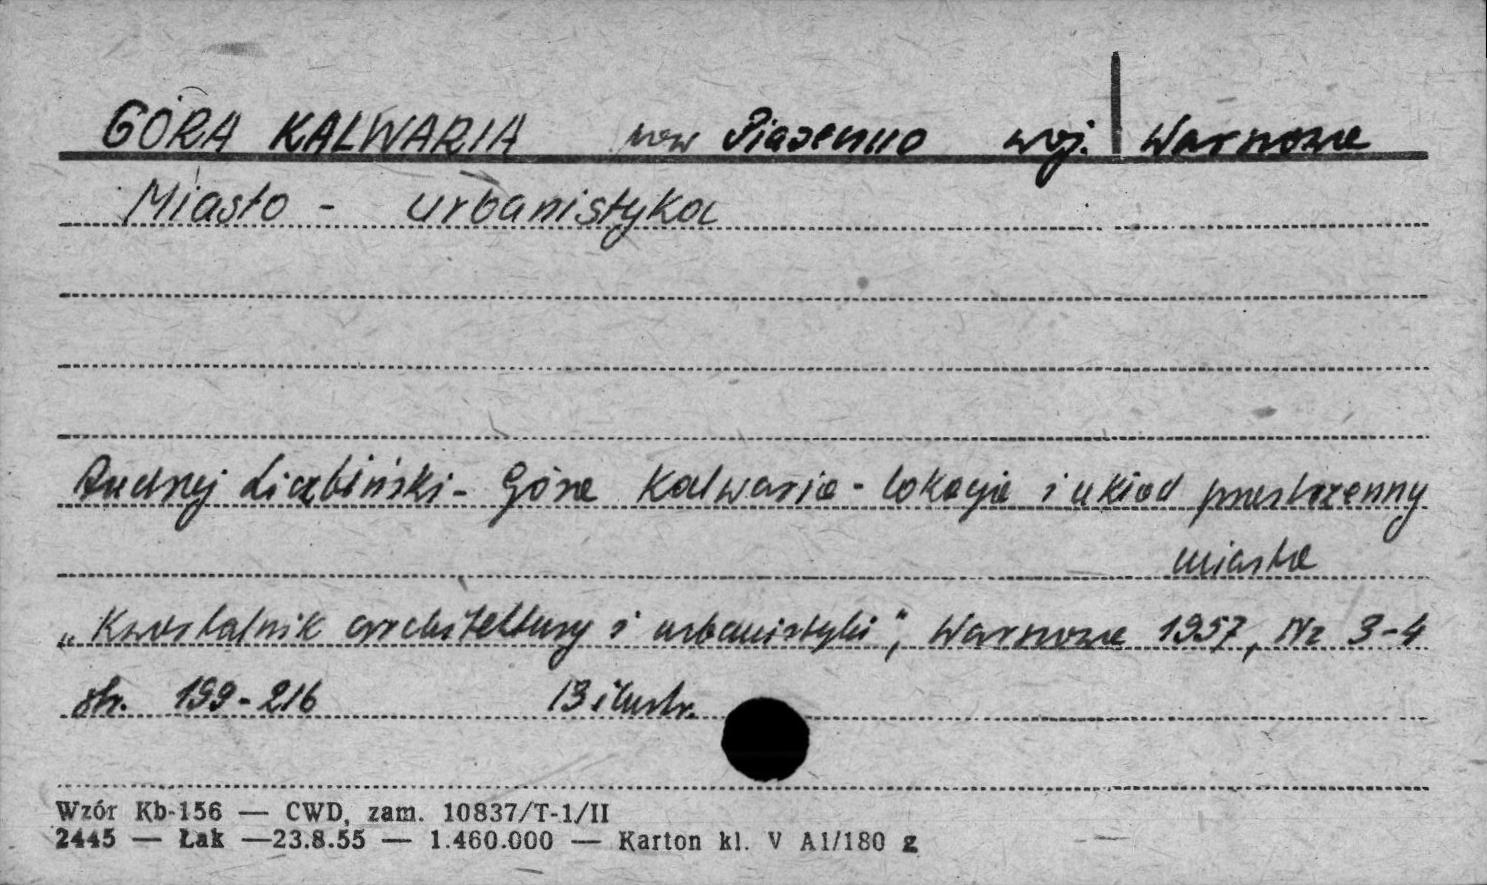 GÓRA KALWARIA pow Piaseczno woj. Warszawa
Miasto - urbanistyka
Andrzej Liczbiński - Góra Kalwaria - lokacja i układ przestrzenny
miasta
„Kwartalnik architektury i urbanistyki", Warszawa 1957, Nr 3-4
str. 199-216 13 ilustr.
Wzór Kb-156 — CWD, zam. 10837/T-1/II
2445 — Łak —23.8.55 — 1.460.000 — Karton kl. V A1/180 g